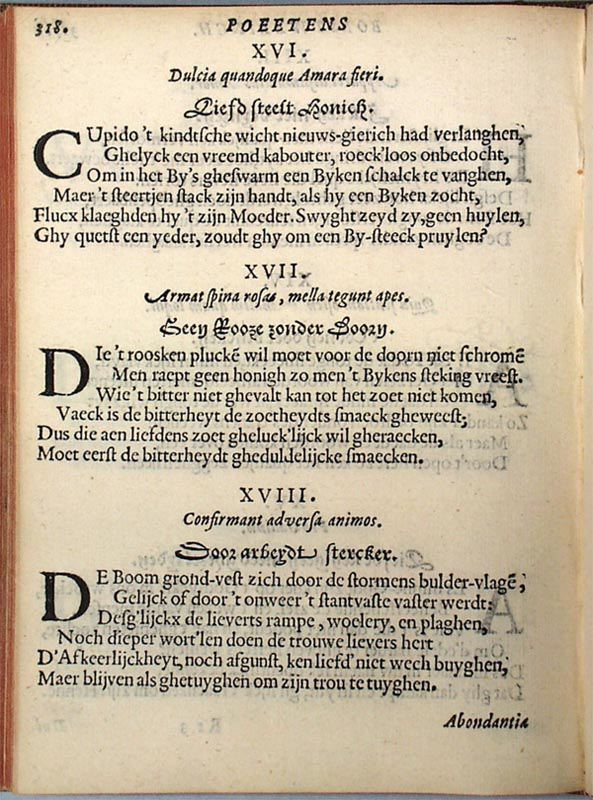 318. POEETENS
XVI.
Dulcia quandoque Amara fieri.
Liefd steelt Honich.
CUpido 't kindtsche wicht nieuws-gierich had verlanghen,
Ghelyck een vreemd kabouter, roeck'loos onbedocht,
Om in het By's gheswarm een Byken schalck te vanghen,
Maer 't steertjen stack zijn handt, als hy een Byken zocht,
Flucx klaeghden hy 't zijn Moeder. Swyght zeyd zy, geen huylen,
Ghy quetst een yeder, zoudt ghy om een By-steeck pruylen?
XVII.
Armat spina rosas, mella tegunt apes.
Geen Rooze zonder Doorn.
DIe 't roosken pluckē wil moet voor de doorn niet schromē
Men raept geen honigh zo men 't Bykens steking vreest.
Wie 't bitter niet ghevalt kan tot het zoet niet komen,
Vaeck is de bitterheyt de zoetheydts smaeck gheweest;
Dus die aen liefdens zoet gheluck'lijck wil gheraecken,
Moet eerst de bitterheydt gheduldelijcke smaecken.
XVIII.
Confirmant adversa animos.
Door arbeydt stercker.
DE Boom grond-vest zich door de stormens bulder-vlagē,
Gelijck of door 't onweer 't stantvaste vaster werdt:
Desg'lijckx de lieverts rampe, woelery, en plaghen,
Noch dieper wort'len doen de trouwe lievers hert
D'Afkeerlijckheyt, noch afgunst, ken liefd' niet wech buyghen,
Maer blijven als ghetuyghen om zijn trou te tuyghen.
Abondantia